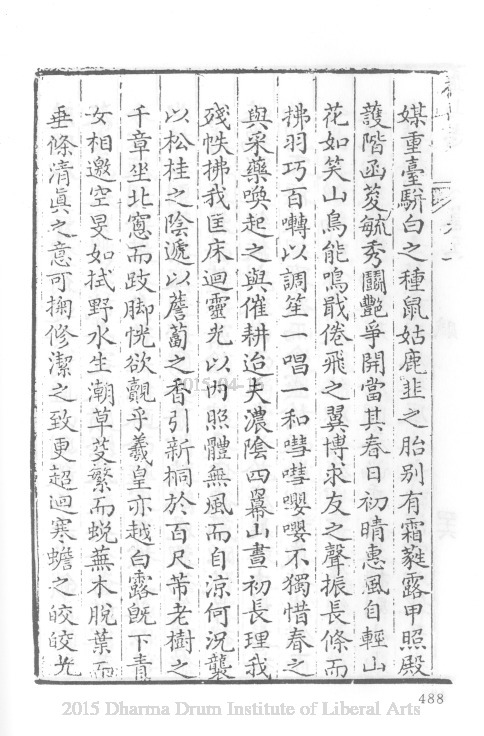 媒重臺駢白之種鼠姑鹿韭之胎别有霜蕤露甲照殿
護階函芰毓秀鬭艷爭開當其春日初晴惠風自輕山
花如笑山鳥能鳴戢倦飛之翼博求友之聲振長條而
拂羽巧百囀以調笙一唱一和嘒嘒嚶嚶不獨惜春之
與采藥喚起之與催耕迨夫濃陰四冪山晝初長理我
殘帙拂我匡床迴靈光以內照體無風而自涼何況襲
以松桂之陰遞以薝蔔之香引新桐於百尺芾老樹之
千章坐北窻而跂脚恍欲覿乎羲皇亦越白露旣下青
女相邀空旻如拭野水生潮草芟繁而蛻蕪木脫葉而
垂條清眞之意可掬修潔之致更超迴寒蟾之皎皎光
488
2015/04/16
2015 Dharma Drum Institute of Liberal Arts